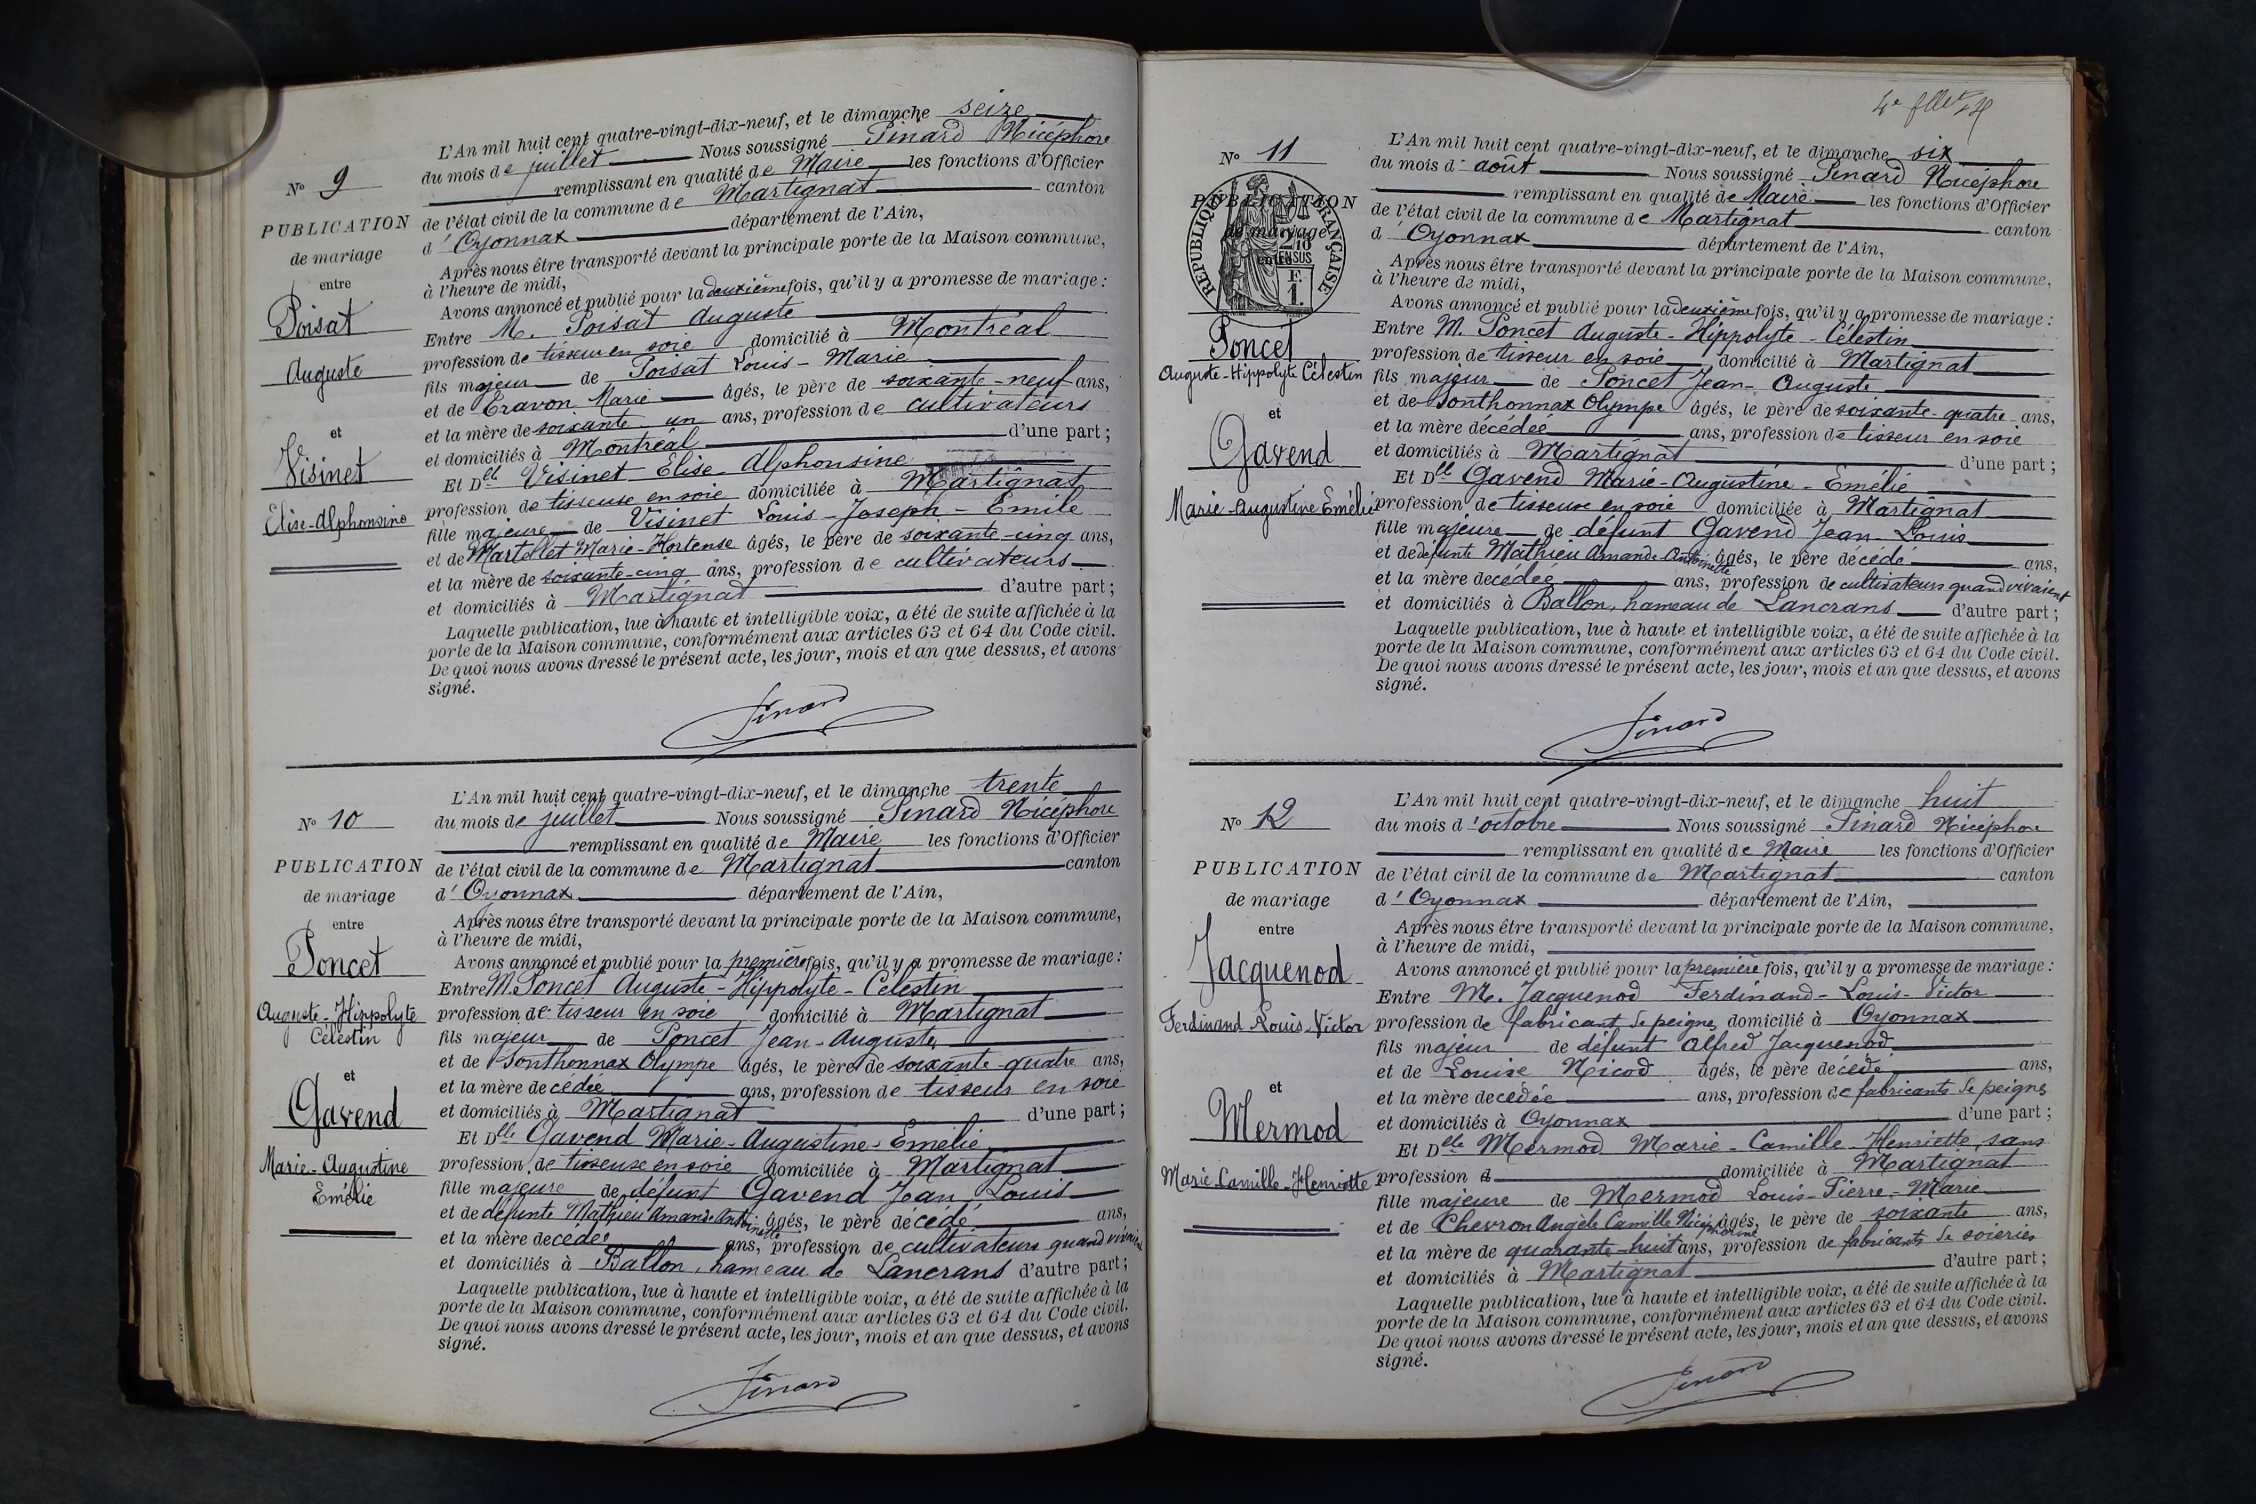 L'An mil huit cent quatre-vingt-dix-neuf, et le dimanche seize
du mois de juillet Nous soussigné Pinard Nicéphore
remplissant en qualité de Maire les fonctions d'Officier
de l'état civil de la commune de Martignat canton
d'Oyonnax département de l'Ain,
Après nous être transporté devant la principale porte de la Maison commune,
à l'heure de midi,
Avons annoncé et publié pour la deuxième fois, qu'il y a promesse de mariage :
Entre M. Poisat Auguste
profession de tisseur en soie domicilié à Montréal
fils majeur de Poisat Louis-Marie
et de Eravon Marie âgés, le père de soixante-neuf ans,
et la mère de soixante un ans, profession de cultivateurs
et domiciliés à Montréal d'une part ;
Et Dlle Visinet Elise-Alphonsine
profession de tisseuse en soie domiciliée à Martignat
fille majeure de Visinet Louis-Joseph-Emile
et de Martelet Marie-Hortense âgés, le père de soixante-cinq ans,
et la mère de soixante-cinq ans, profession de cultivateurs
et domiciliés à Martignat d'autre part ;
Laquelle publication, lue à haute et intelligible voix, a été de suite affichée à la
porte de la Maison commune, conformément aux articles 63 et 64 du Code civil.
De quoi nous avons dressé le présent acte, les jour, mois et an que dessus, et avons
signé.
Pinard
N° 9
PUBLICATION
de mariage
entre
Poisat
Auguste
et
Visinet
Elise-Alphonsine
L'An mil huit cent quatre-vingt-dix-neuf, et le dimanche trente
du mois de juillet Nous soussigné Pinard Nicéphore
remplissant en qualité de Maire les fonctions d'Officier
de l'état civil de la commune de Martignat canton
d'Oyonnax département de l'Ain,
Après nous être transporté devant la principale porte de la Maison commune,
à l'heure de midi,
Avons annoncé et publié pour la première fois, qu'il y a promesse de mariage :
Entre M. Poncet Auguste-Hippolyte-Célestin
profession de tisseur en soie domicilié à Martignat
fils majeur de Poncet Jean-Auguste
et de Sonthonnax Olympe âgés, le père de soixante-quatre ans,
et la mère décédée ans, profession de tisseur en soie
et domiciliés à Martignat d'une part ;
Et Dlle Gavend Marie-Augustine-Emélie
profession de tisseuse en soie domiciliée à Martignat
fille majeure de défunt Gavend Jean-Louis
et de défunte Mathieu Amande-Antoinette âgés, le père décédé ans,
et la mère décédée ans, profession de cultivateurs quand vivaient
et domiciliés à Ballon, hameau de Lancrans d'autre part ;
Laquelle publication, lue à haute et intelligible voix, a été de suite affichée à la
porte de la Maison commune, conformément aux articles 63 et 64 du Code civil.
De quoi nous avons dressé le présent acte, les jour, mois et an que dessus, et avons
signé.
Pinard
N° 10
PUBLICATION
de mariage
entre
Poncet
Auguste-Hippolyte
Célestin
et
Gavend
Marie-Augustine
Emélie
4e
L'An mil huit cent quatre-vingt-dix-neuf, et le dimanche six
du mois d'août Nous soussigné Pinard Nicéphore
remplissant en qualité de Maire les fonctions d'Officier
de l'état civil de la commune de Martignat canton
d'Oyonnax département de l'Ain,
Après nous être transporté devant la principale porte de la Maison commune,
à l'heure de midi,
Avons annoncé et publié pour la deuxième fois, qu'il y a promesse de mariage :
Entre M. Poncet Auguste-Hippolyte-Célestin
profession de tisseur en soie domicilié à Martignat
fils majeur de Poncet Jean-Auguste
et de Sonthonnax Olympe âgés, le père de soixante-quatre ans,
et la mère décédée ans, profession de tisseur en soie
et domiciliés à Martignat d'une part ;
Et Dlle Gavend Marie-Augustine-Emélie
profession de tisseuse en soie domiciliée à Martignat
fille majeure de défunt Gavend Jean-Louis
et de défunte Mathieu Amande-Antoinette âgés, le père décédé ans,
et la mère décédée ans, profession de cultivateurs quand vivaient
et domiciliés à Ballon, hameau de Lancrans d'autre part ;
Laquelle publication, lue à haute et intelligible voix, a été de suite affichée à la
porte de la Maison commune, conformément aux articles 63 et 64 du Code civil.
De quoi nous avons dressé le présent acte, les jour, mois et an que dessus, et avons
signé.
Pinard
N° 11
PUBLICATION
de mariage
entre
RÉPUBLIQUE FRANÇAISE
2/10
EN SUS
F.
1.
Poncet
Auguste-Hippolyte Célestin
et
Gavend
Marie-Augustine Emélie
L'An mil huit cent quatre-vingt-dix-neuf, et le dimanche huit
du mois d'octobre Nous soussigné Pinard Nicéphore
remplissant en qualité de Maire les fonctions d'Officier
de l'état civil de la commune de Martignat canton
d'Oyonnax département de l'Ain,
Après nous être transporté devant la principale porte de la Maison commune,
à l'heure de midi,
Avons annoncé et publié pour la première fois, qu'il y a promesse de mariage :
Entre M. Jacquenod Ferdinand-Louis-Victor
profession de fabricant de peignes domicilié à Oyonnax
fils majeur de défunt Alfred Jacquenod
et de Louise Nicod âgés, le père décédé ans,
et la mère décédée ans, profession de fabricants de peignes
et domiciliés à Oyonnax d'une part ;
Et Dlle Mermod Marie-Camille-Henriette, sans
profession d domiciliée à Martignat
fille majeure de Mermod Louis-Pierre-Marie
et de Chevron Angèle Camille Nicéphorine âgés, le père de soixante ans,
et la mère de quarante-huit ans, profession de fabricants de soieries
et domiciliés à Martignat d'autre part ;
Laquelle publication, lue à haute et intelligible voix, a été de suite affichée à la
porte de la Maison commune, conformément aux articles 63 et 64 du Code civil.
De quoi nous avons dressé le présent acte, les jour, mois et an que dessus, et avons
signé.
Pinard
N° 12
PUBLICATION
de mariage
entre
Jacquenod
Ferdinand Louis-Victor
et
Mermod
Marie Camille-Henriette